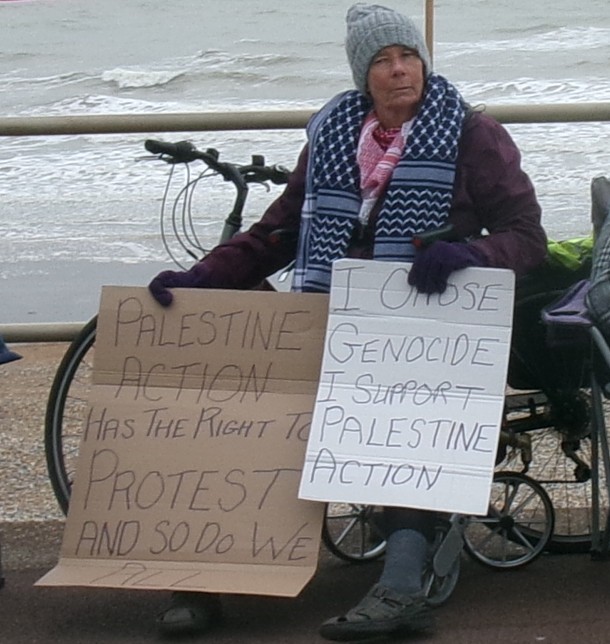 PALESTINE
ACTION
HAS THE RIGHT TO
PROTEST
AND SO DO WE
ALL
I OPPOSE
GENOCIDE
I SUPPORT
PALESTINE
ACTION